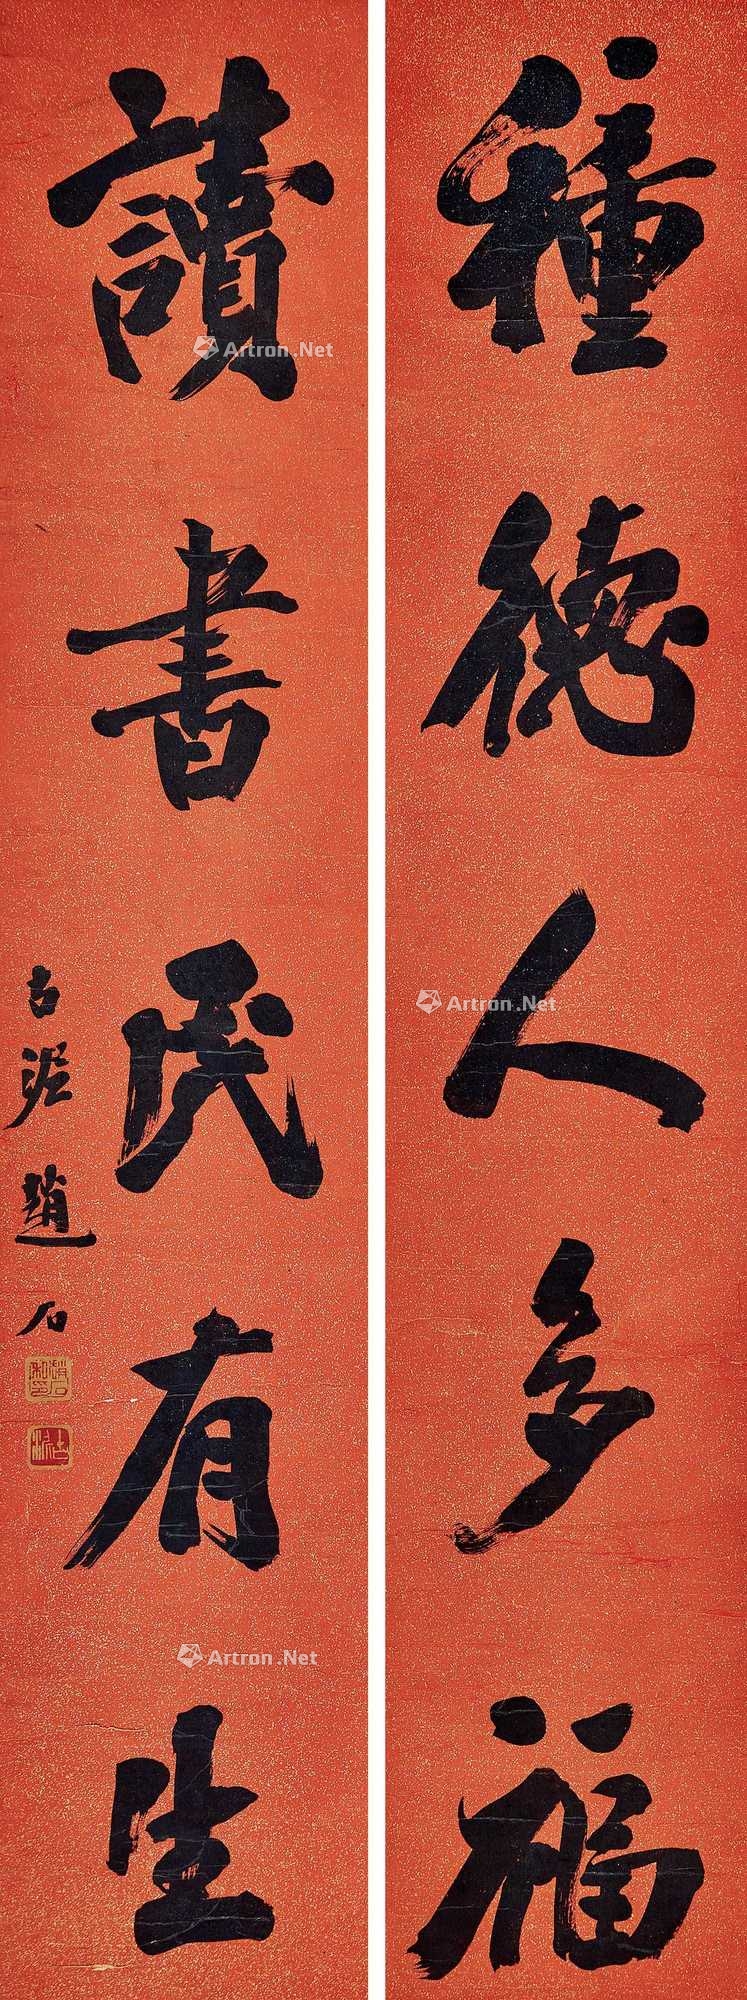 種德人多福
讀書民有生
古泥趙石
趙石私印
古泥
Artron.Net
Artron.Net
Artron.Net